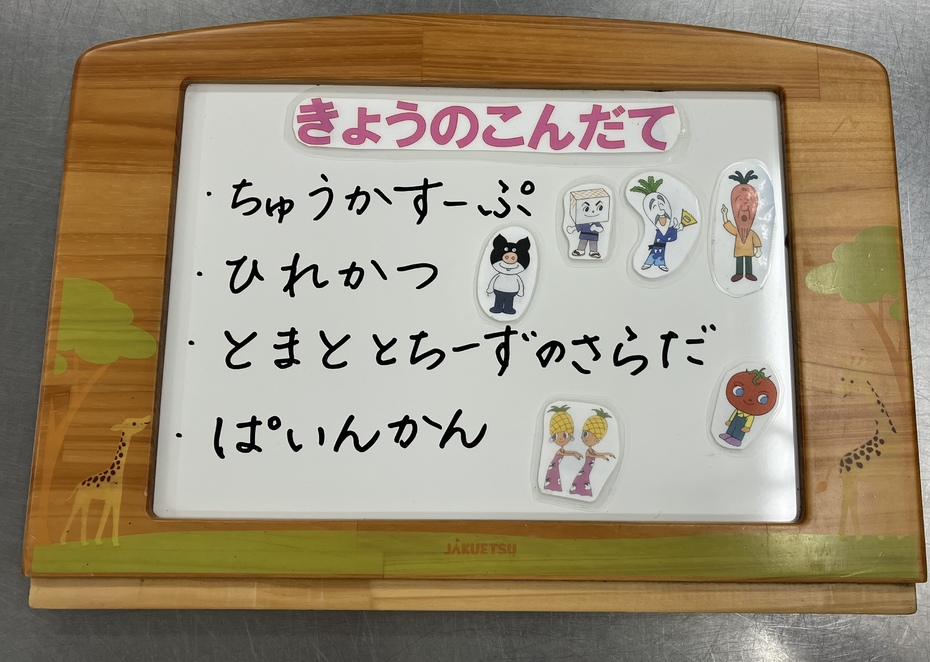 きょうのこんだて
・ちゅうかすーぷ
・ひれかつ
・とまととちーずのさらだ
・ぱいんかん
JAKUETSU